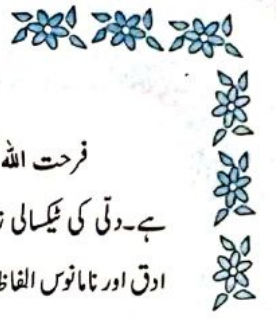 فرحت اللہ
ہے۔ دلّی کی ٹیکسالی ز
ادق اور نامانوس الفاظ